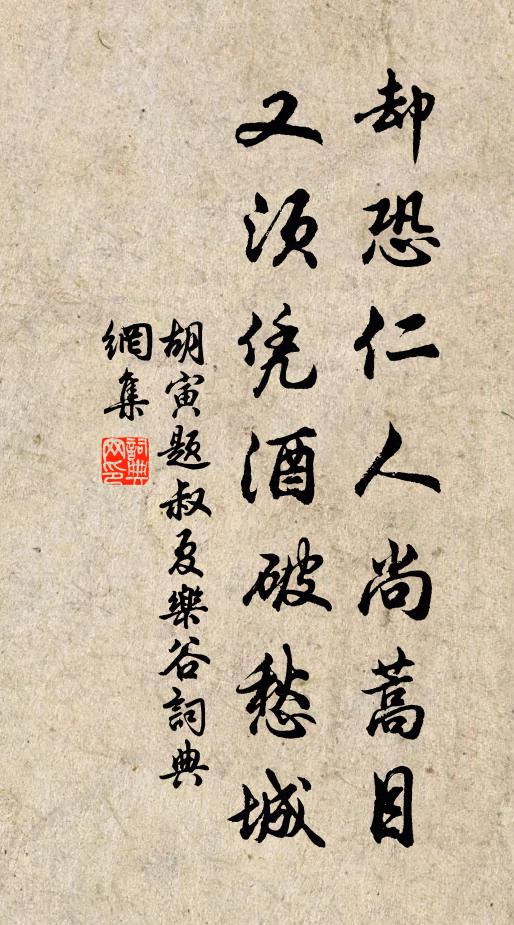 却恐仁人尚蒿目
又须凭酒破愁城
胡寅题叔夏樂谷詞典
網集
詞典
网印